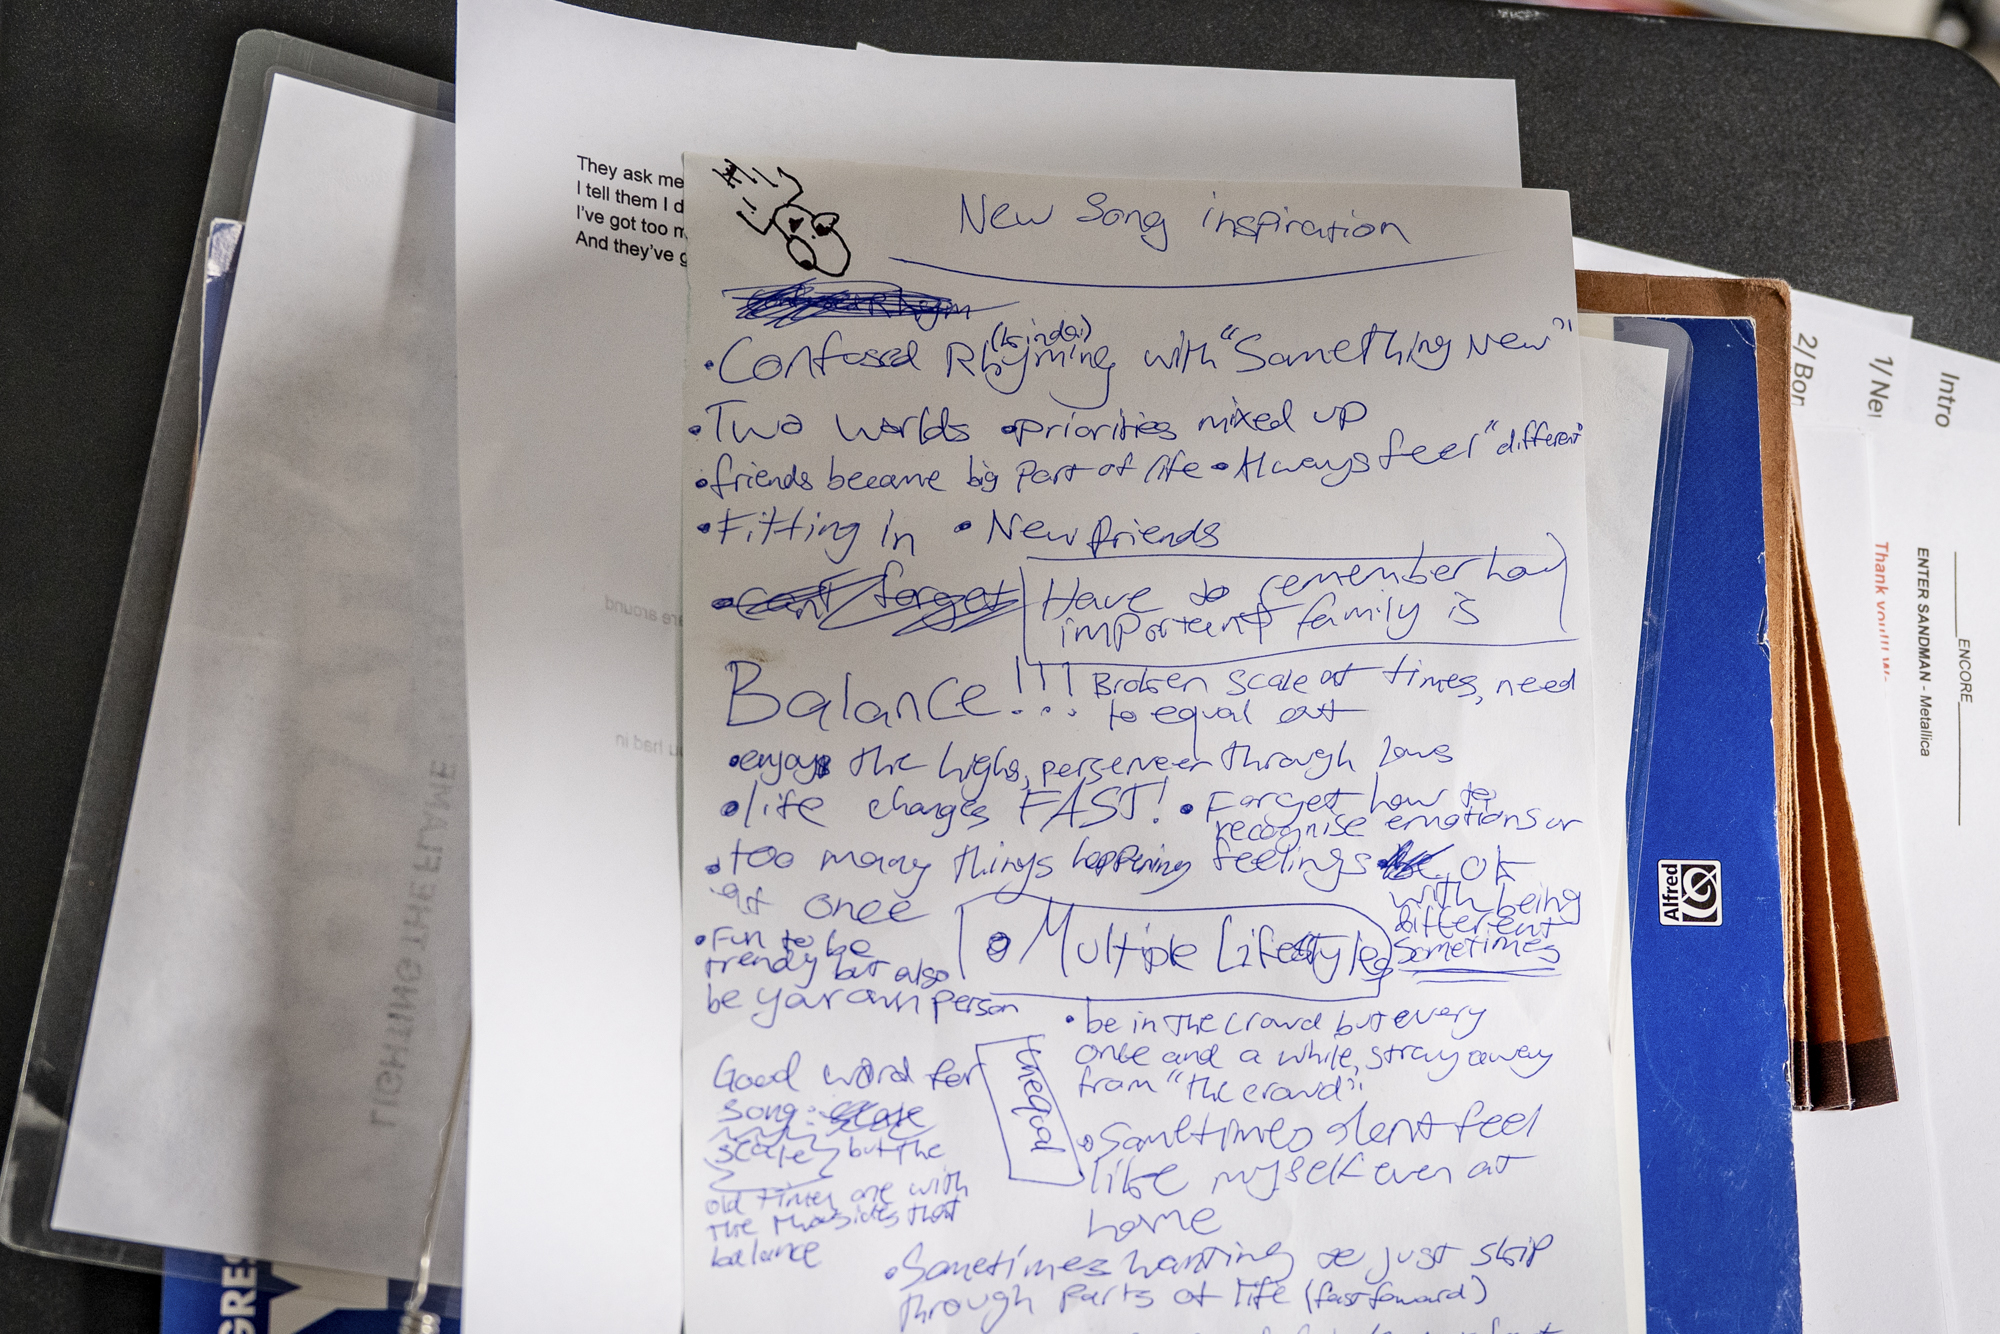 They ask me
I tell them I d
I've got too m
And they've g
New Song inspiration
• Confused Rhyming (kinda) with "Something New"
• Two worlds • priorities mixed up
• friends became big part of life • Always feel "different"
• Fitting In • New friends
• can't forget
Have to remember how
important family is
Balance!!! Broken scale at times, need
to equal out
• enjoy the highs, perserveer through lows
• life changes FAST! • Forget how to
recognise emotions or
feelings
• too many things happening
at once
• OK
with being
different
sometimes
• Multiple Lifestyles
• Fun to be
trendy but also
be your own person
• be in the crowd but every
once and a while, stray away
from "the crowd"
Good word for
song:
scale, but the
old times one with
the two sides that
balance
unequal
• Sometimes dont feel
like myself even at
home
• Sometimes wanting to just skip
through parts of life (fast foward)
are around
u had in
LIGHTING THE FLAME
GRES
Alfred
2/ Bor
1/ Ne
Intro
Thank you!!!
ENTER SANDMAN - Metallica
ENCORE